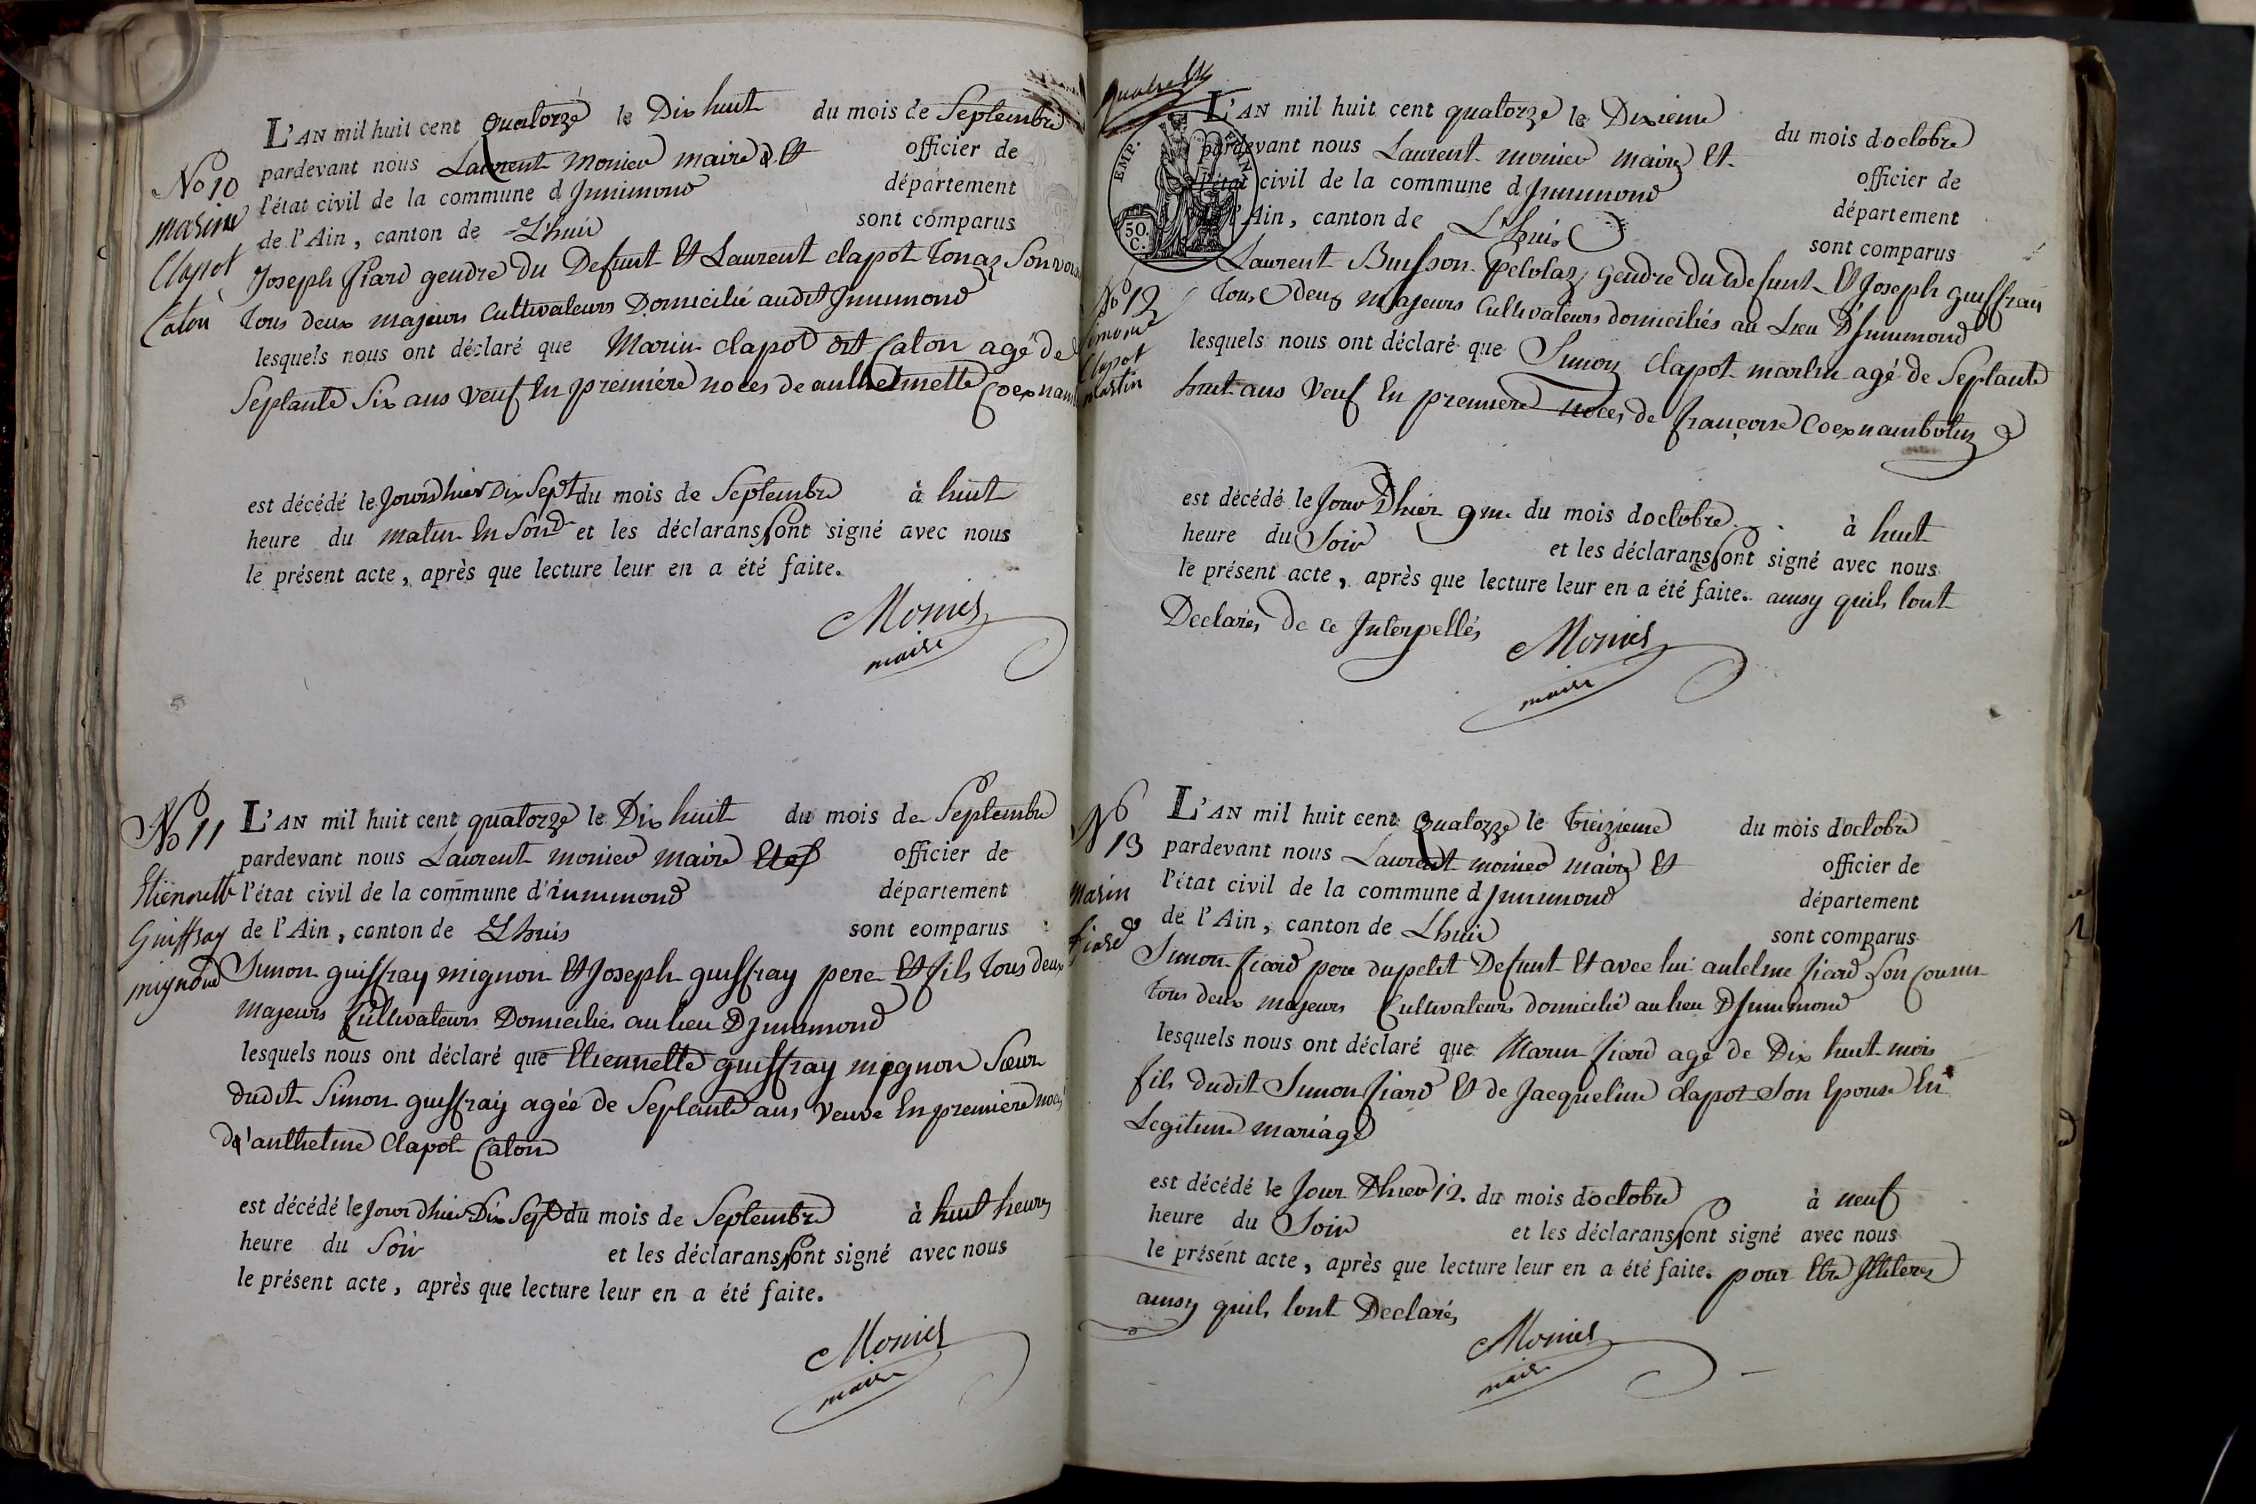 L'AN mil huit cent quatorze le Dix huit du mois de Septembre
pardevant nous Laurent monier maire & Et officier de
l'état civil de la commune d Innimond département
de l'Ain, canton de Lhuis sont comparus
No 10
marin
Clapot
Caton
Joseph fiard gendre du Defunt Et Laurent clapot Tonaz Son
Tous deux majeurs Cultivateurs Domicilié audit Innimond
lesquels nous ont déclaré que Marin clapot dit Caton agé de
Septante Six ans veuf En premiére noces de anthelmette
est décédé le Jourdhier Dix Sept du mois de Septembre à huit
heure du matin En Sond et les déclarans sont signé avec nous
le présent acte, après que lecture leur en a été faite.
Monier
maire
L'AN mil huit cent quatorze le Dix huit du mois de Septembre
pardevant nous Laurent monier maire Et of officier de
l'état civil de la commune d'innimond département
de l'Ain, canton de Lhuis sont comparus
No 11
Etiennette
Guiffray
mignond
Simon guiffray mignon Et Joseph guiffray pere Et fils Tous deux
majeurs Cultivateurs Domiciliés au lieu D Innimond
lesquels nous ont déclaré que Etiennette guiffray mignon Sœur
dudit Simon guiffray agée de Septante ans veuve En premiere noces
De'anthelme Clapot Caton
est décédé le Jour dhier Dix Sept du mois de Septembre à huit heures
heure du Soir et les déclarans sont signé avec nous
le présent acte, après que lecture leur en a été faite.
Monier
maire
EMP.
50.
C.
L'AN mil huit cent quatorze le Dixieme du mois doctobre
pardevant nous Laurent monier maire Et officier de
l'état civil de la commune d Innimond département
l'Ain, canton de Lhuis sont comparus
No 12
Simond
Clapot
martin
Laurent Buisson Pelolaz gendre du defunt Et Joseph guiffray
Tous deux majeurs Cultivateurs domiciliés au Lieu D'Innimond
lesquels nous ont déclaré que Simon Clapot martin agé de Septante
huit ans Veuf En premiere noces de françoise Coexnambotin
est décédé le Jour Dhier 9me du mois doctobre à huit
heure du Soir et les déclarans sont signé avec nous
le présent acte, après que lecture leur en a été faite. ainsy quils lont
Declarés de ce Interpellés
Monier
maire
L'AN mil huit cent Quatorze le treizieme du mois doctobre
pardevant nous Laurent monier maire Et officier de
l'état civil de la commune d Innimond département
de l'Ain, canton de Lhuis sont comparus
No
13
Marin
fiard
Simon fiard pere du petit Defunt Et avec lui antelme fiard Son cousin
Tous deux majeurs Cultivateurs domicilié au lieu D Innimond
lesquels nous ont déclaré que Marin fiard agé de Dix huit mois
fils dudit Simon fiard Et de Jacqueline clapot Son Epouse En
Legitime mariage
est décédé le Jour Dhier 12. du mois doctobre à neuf
heure du Soir et les déclarans sont signé avec nous
le présent acte, après que lecture leur en a été faite. pour Etre Illiterez
ainsy quils lont Declarés
Monier
maire